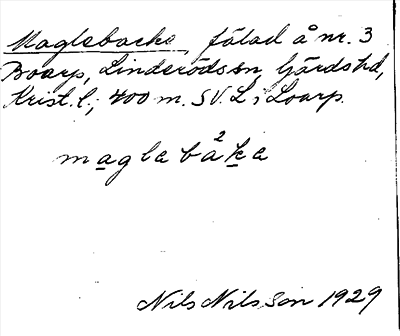 Maglebacke, fälad å nr. 3
Boarp, Linderöds sn, Gärds hd,
Krist. l., 400 m. SV. L. Loarp.
maglabå²ka
Nils Nilsson 1929